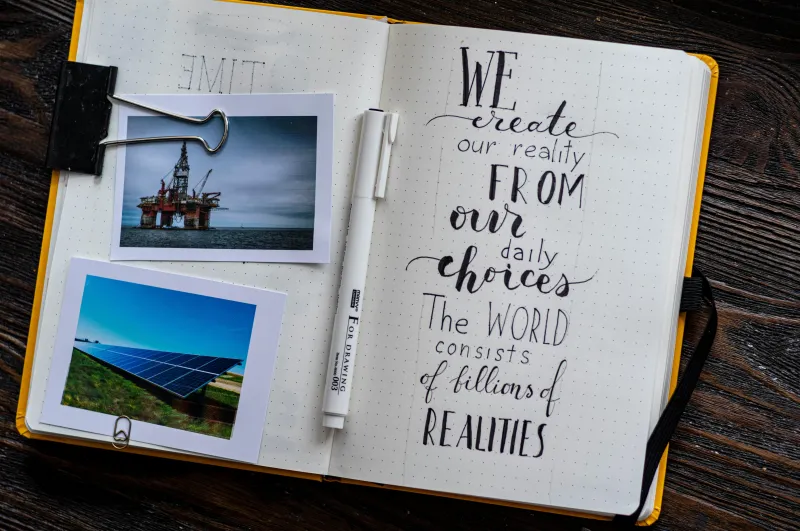 TIME
WE
create
our reality
FROM
our
daily
choices
The WORLD
consists
of billions of
REALITIES
FOR DRAWING
003